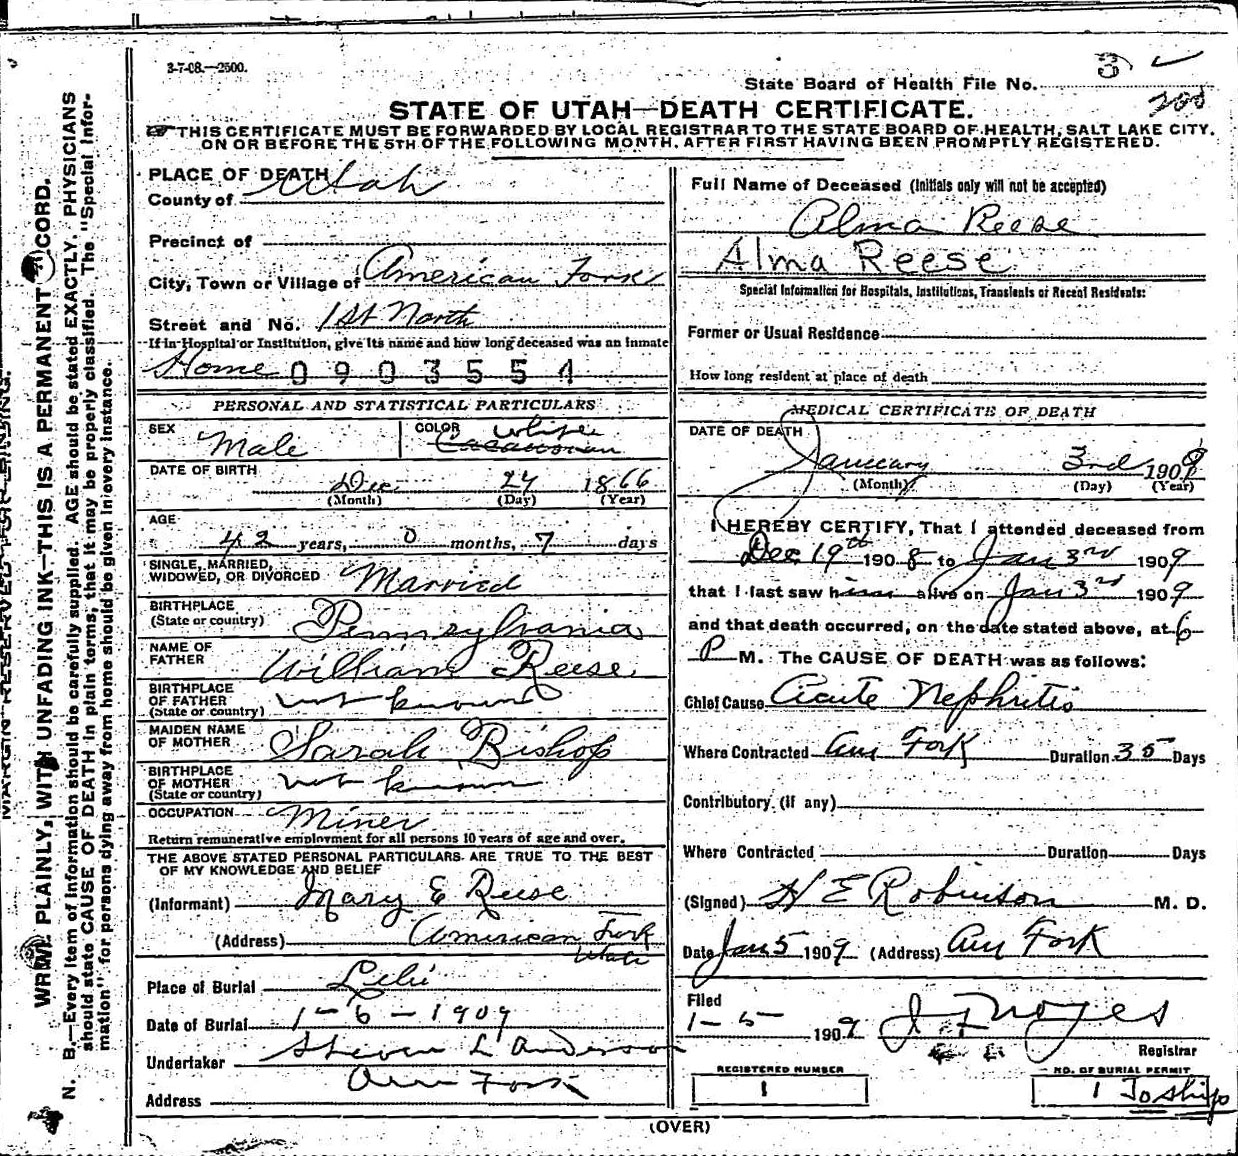 3-7-08.—2500.
State Board of Health File No. 3
200
STATE OF UTAH—DEATH CERTIFICATE.
THIS CERTIFICATE MUST BE FORWARDED BY LOCAL REGISTRAR TO THE STATE BOARD OF HEALTH, SALT LAKE CITY,
ON OR BEFORE THE 5TH OF THE FOLLOWING MONTH, AFTER FIRST HAVING BEEN PROMPTLY REGISTERED.
PLACE OF DEATH
County of Utah
Precinct of
City, Town or Village of American Fork
Street and No. 1st North
If in Hospital or Institution, give its name and how long deceased was an inmate
Home 0903551
PERSONAL AND STATISTICAL PARTICULARS
SEX Male
COLOR White
Caucasian
DATE OF BIRTH
Dec 24 1866
(Month) (Day) (Year)
AGE
42 years, 0 months, 7 days
SINGLE, MARRIED,
WIDOWED, OR DIVORCED Married
BIRTHPLACE
(State or country) Pennsylvania
NAME OF
FATHER William Reese
BIRTHPLACE
OF FATHER
(State or country) not known
MAIDEN NAME
OF MOTHER Sarah Bishop
BIRTHPLACE
OF MOTHER
(State or country) not known
OCCUPATION Miner
Return remunerative employment for all persons 10 years of age and over.
THE ABOVE STATED PERSONAL PARTICULARS ARE TRUE TO THE BEST
OF MY KNOWLEDGE AND BELIEF
(Informant) Mary E Reese
(Address) American Fork
Utah
Place of Burial Lehi
Date of Burial 1-6-1909
Undertaker Steven L Anderson
Address Am Fork
Full Name of Deceased (Initials only will not be accepted)
Alma Reese
Alma Reese
Special Information for Hospitals, Institutions, Transients or Recent Residents:
Former or Usual Residence
How long resident at place of death
MEDICAL CERTIFICATE OF DEATH
DATE OF DEATH
January 3rd 1909
(Month) (Day) (Year)
I HEREBY CERTIFY, That I attended deceased from
Dec 19th 1908 to Jan 3rd 1909
that I last saw him alive on Jan 3rd 1909
and that death occurred, on the date stated above, at 6
P M. The CAUSE OF DEATH was as follows:
Chief Cause Acute Nephritis
Where Contracted Am Fork Duration 35 Days
Contributory (if any)
Where Contracted Duration Days
(Signed) H E Robinson M. D.
Date Jan 5 1909 (Address) Am Fork
Filed
1-5- 1909 J F Noyes
Registrar
REGISTERED NUMBER
1
NO. OF BURIAL PERMIT
1 To Ship
(OVER)
MARGIN RESERVED FOR BINDING.
WRITE PLAINLY, WITH UNFADING INK—THIS IS A PERMANENT RECORD.
N. B.—Every item of information should be carefully supplied. AGE should be stated EXACTLY. PHYSICIANS
should state CAUSE OF DEATH in plain terms, that it may be properly classified. The "Special Infor-
mation" for persons dying away from home should be given in every instance.